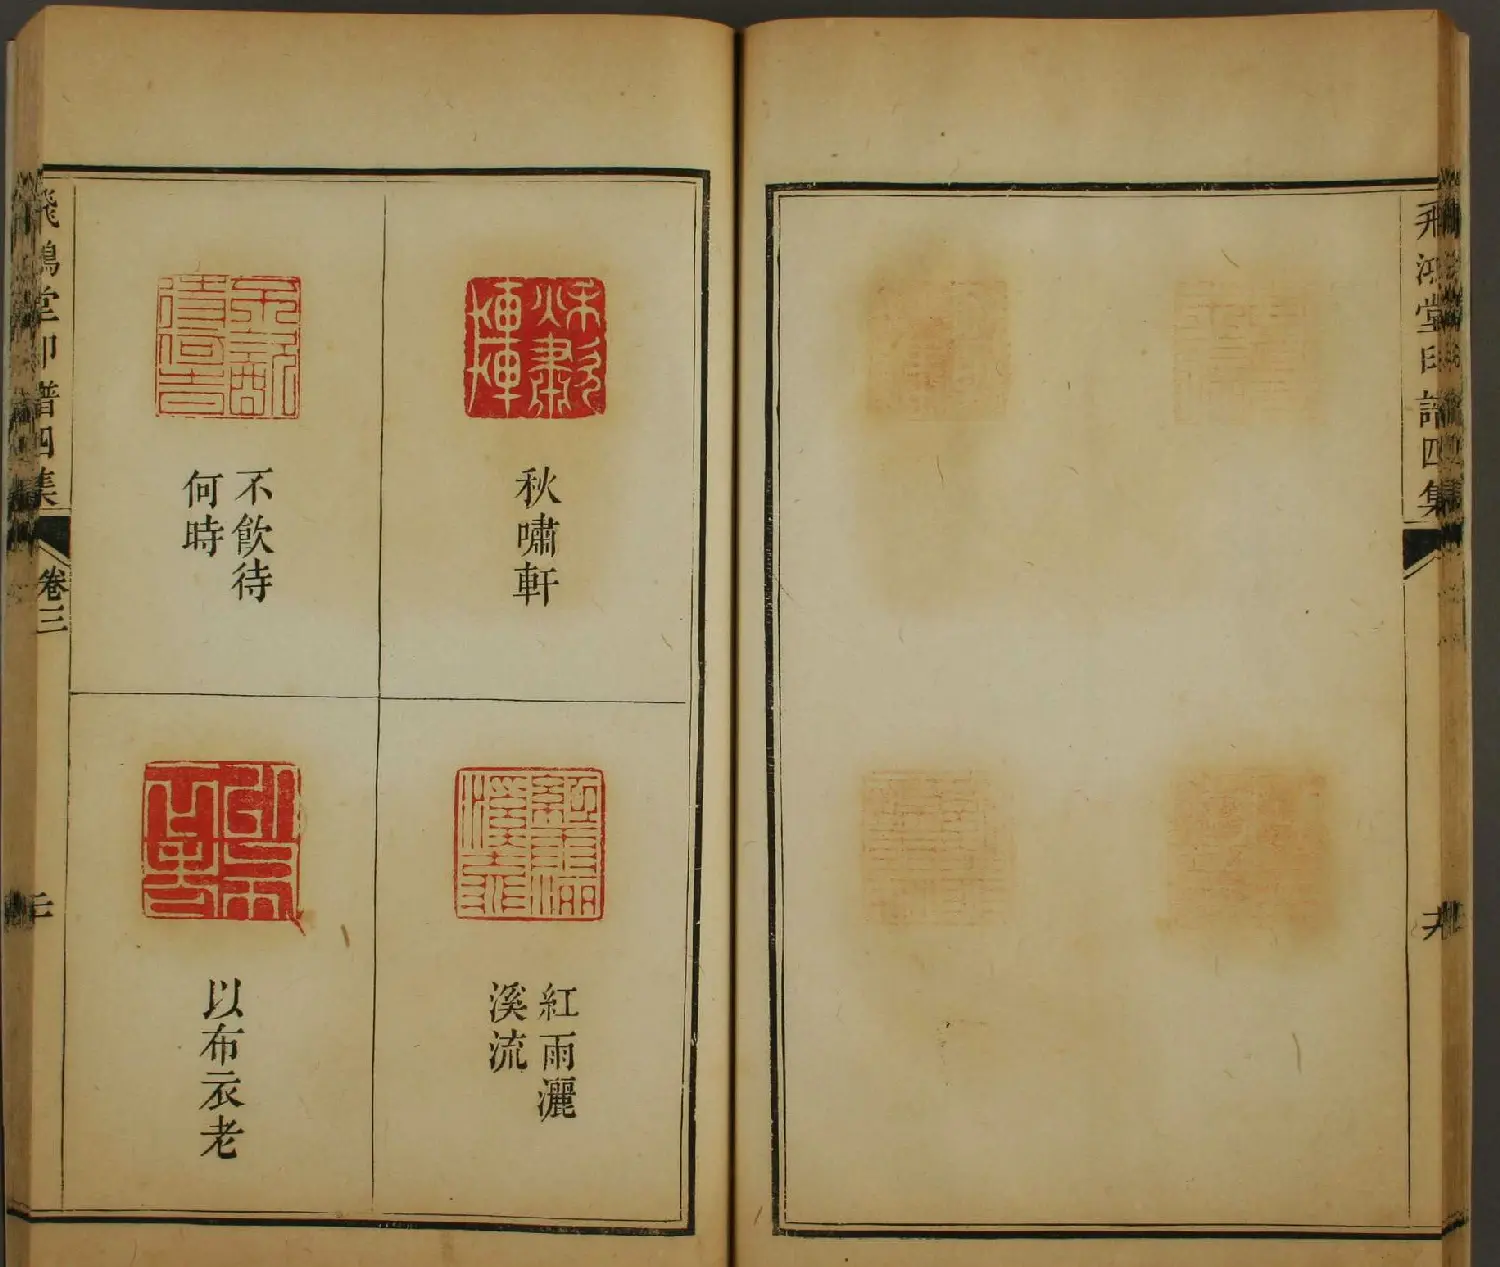 飛鴻堂印譜四集
秋嘯軒
紅雨灑
溪流
不飲待
何時
以布衣老
飛鴻堂印譜四集
卷三
二